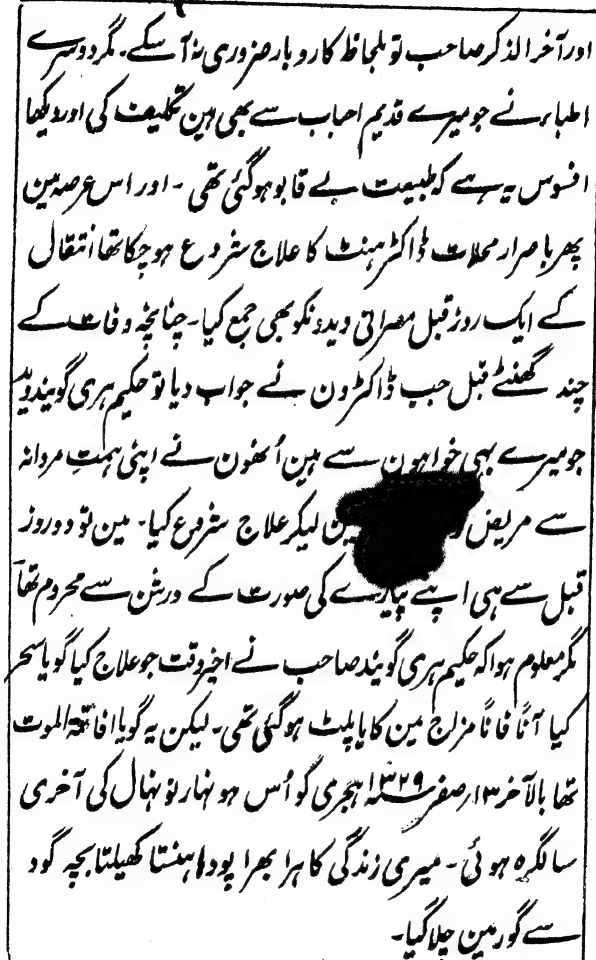 اور آخر الذکر صاحب تو بلحاظ کاروبار ضروری نہ آسکے۔ مگر دوسرے
اطباء نے جو میرے قدیم احباب سے بھی ہین تکلیف کی اور دیکھا
افسوس یہ ہے کہ طبیعت بے قابو ہوگئی تھی ۔ اور اس عرصہ مین
پھر باصرار محلات ڈاکٹر ہنٹ کا علاج شروع ہوچکا تھا انتقال
کے ایک روز قبل مصراتی ویدونکو بھی جمع کیا۔ چنانچہ وفات کے
چند گھنٹے قبل جب ڈاکٹرون نے جواب دیا تو حکیم ہری گوبیند وید
جو میرے بہی خواہون سے ہین اُنھون نے اپنی ہمت مردانہ
سے مریض لیکر علاج شروع کیا۔ مین تو دو روز
قبل سے ہی اپنے پیارے کی صورت کے درشن سے محروم تھا
مگر معلوم ہوا کہ حکیم ہری گوبند صاحب نے اخیر وقت جو علاج کیا گویا سحر
کیا آنًا فانًا مزاج مین کایا پلٹ ہوگئی تھی۔ لیکن یہ گویا افاقۃ الموت
تھا بالآخر ۱۳؍صفر ۱۳۲۹ ہجری کو اُس ہونہار نونہال کی آخری
سالگرہ ہوئی ۔ میری زندگی کا ہرا بھرا پودا ہنستا کھیلتا بچہ گود
سے گور مین چلا گیا۔